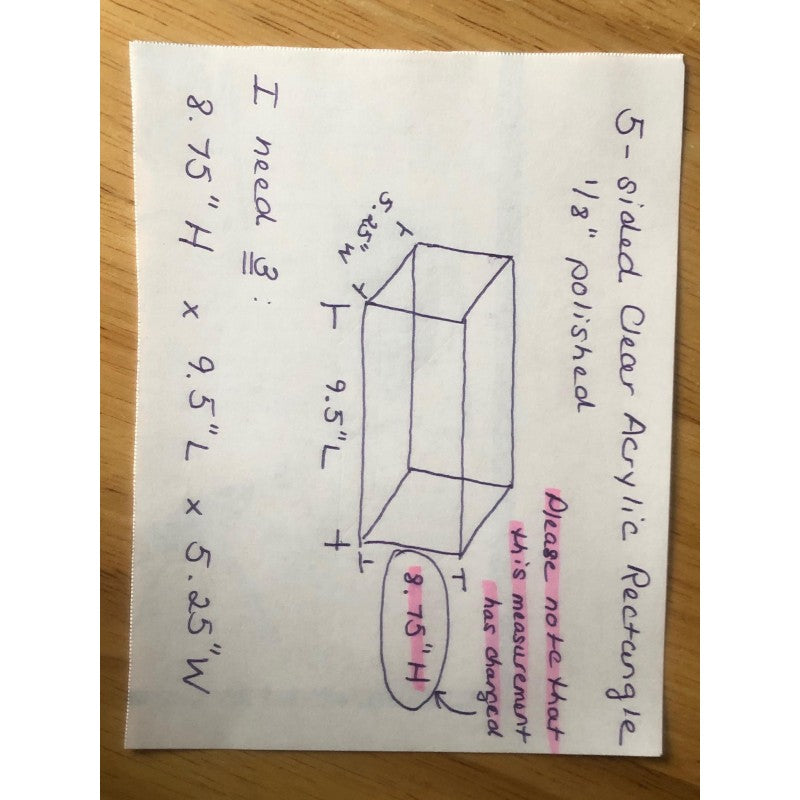 5-sided Clear Acrylic Rectangle
1/8" polished
Please note that
this measurement
has changed
8.75" H
5.25" W
9.5" L
I need 3:
8.75" H x 9.5" L x 5.25" W